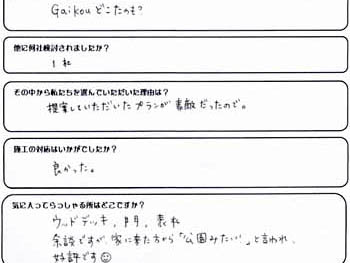 Gaikou どこたのも?
他に何社検討されましたか?
1社
その中から私たちを選んでいただいた理由は?
提案していただいたプランが素敵だったので。
施工の対応はいかがでしたか?
良かった。
気に入ってらっしゃる所はどこですか?
ウッドデッキ, 門, 表札
余談ですが、家に来た方から「公園みたい」と言われ、
好評です☺